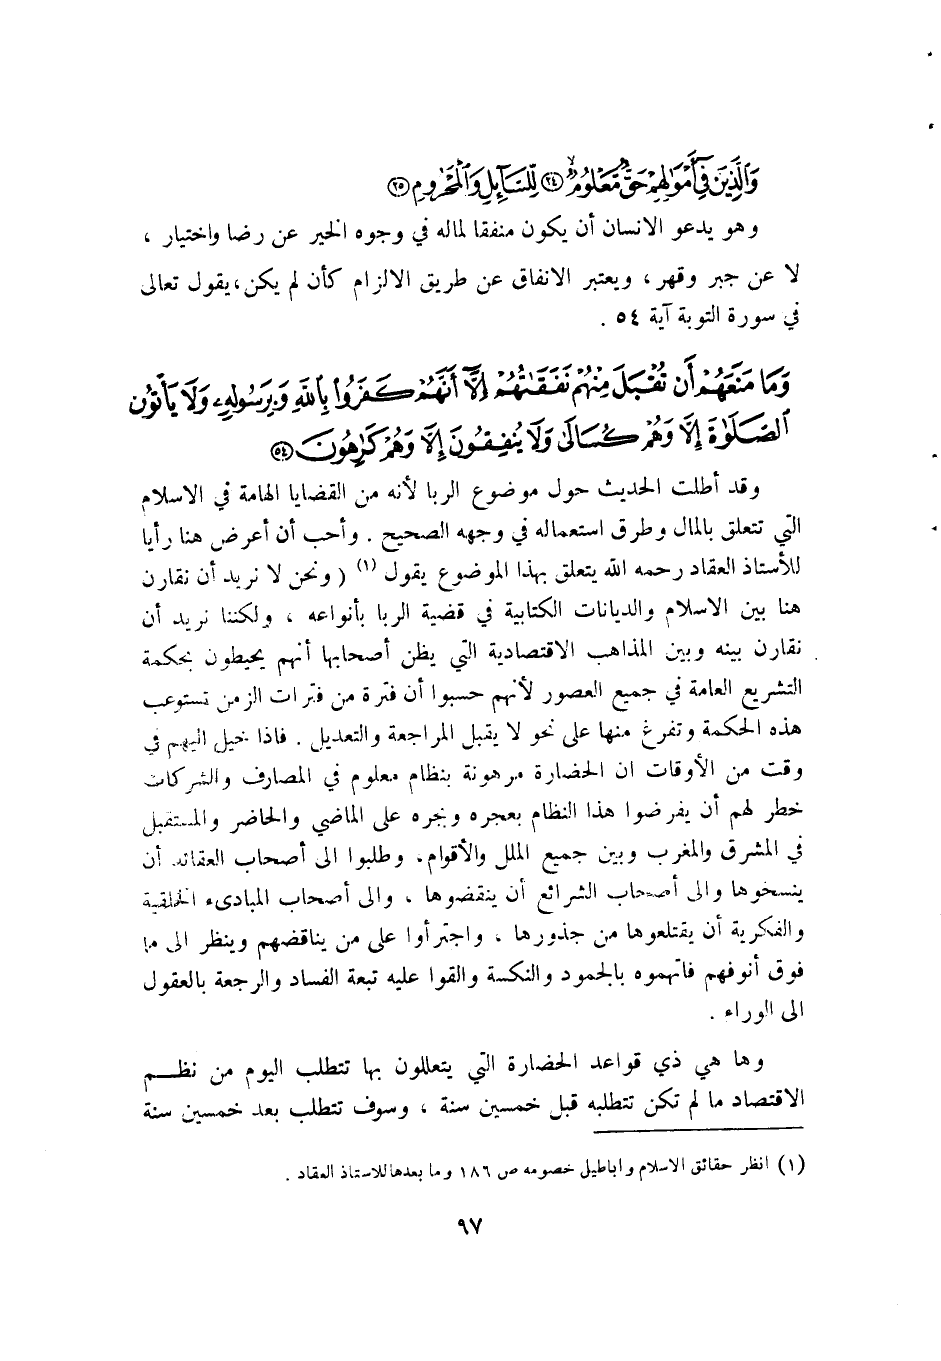 وَٱلَّذِينَ فِىٓ أَمْوَٰلِهِمْ حَقٌّ مَّعْلُومٌ ﴿٢٤﴾ لِّلسَّآئِلِ وَٱلْمَحْرُومِ ﴿٢٥﴾
وهو يدعو الانسان أن يكون منفقا لماله في وجوه الخير عن رضا واختيار ،
لا عن جبر وقهر ، ويعتبر الانفاق عن طريق الالزام كأن لم يكن ، يقول تعالى
في سورة التوبة آية ٥٤ .
وَمَا مَنَعَهُمْ أَن تُقْبَلَ مِنْهُمْ نَفَقَٰتُهُمْ إِلَّآ أَنَّهُمْ كَفَرُوا۟ بِٱللَّهِ وَبِرَسُولِهِۦ وَلَا يَأْتُونَ
ٱلصَّلَوٰةَ إِلَّا وَهُمْ كُسَالَىٰ وَلَا يُنفِقُونَ إِلَّا وَهُمْ كَٰرِهُونَ ﴿٥٤﴾
وقد أطلت الحديث حول موضوع الربا لأنه من القضايا الهامة في الاسلام
التي تتعلق بالمال وطرق استعماله في وجهه الصحيح . وأحب أن أعرض هنا رأيا
للأستاذ العقاد رحمه الله يتعلق بهذا الموضوع يقول (١) ( ونحن لا نريد أن نقارن
هنا بين الاسلام والديانات الكتابية في قضية الربا بأنواعه ، ولكننا نريد أن
نقارن بينه وبين المذاهب الاقتصادية التي يظن أصحابها أنهم يحيطون بحكمة
التشريع العامة في جميع العصور لأنهم حسبوا أن فترة من فترات الزمن تستوعب
هذه الحكمة وتفرغ منها على نحو لا يقبل المراجعة والتعديل . فاذا خيل اليهم في
وقت من الأوقات ان الحضارة مرهونة بنظام معلوم في المصارف والشركات
خطر لهم أن يفرضوا هذا النظام بعجره وبجره على الماضي والحاضر والمستقبل
في المشرق والمغرب وبين جميع الملل والأقوام، وطلبوا الى أصحاب العقائد أن
ينسخوها والى أصحاب الشرائع أن ينقضوها ، والى أصحاب المبادىء الخلقية
والفكرية أن يقتلعوها من جذورها ، واجترأوا على من يناقضهم وينظر الى ما
فوق أنوفهم فاتهموه بالجمود والنكسة والقوا عليه تبعة الفساد والرجعة بالعقول
الى الوراء .
وها هي ذي قواعد الحضارة التي يتعللون بها تتطلب اليوم من نظـــم
الاقتصاد ما لم تكن تتطلبه قبل خمسين سنة ، وسوف تتطلب بعد خمسين سنة
(١) انظر حقائق الاسلام واباطيل خصومه ص ١٨٦ وما بعدها للاستاذ العقاد .
٩٧